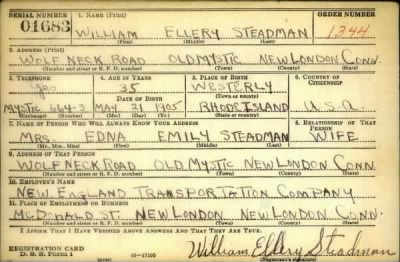 SERIAL NUMBER 1. NAME (Print) ORDER NUMBER
01683 WILLIAM ELLERY STEADMAN 1344
(First) (Middle) (Last)
2. ADDRESS (Print)
WOLF NECK ROAD OLD MYSTIC NEW LONDON CONN.
(Number and street or R. F. D. number) (Town) (County) (State)
3. TELEPHONE 4. AGE IN YEARS 5. PLACE OF BIRTH 6. COUNTRY OF CITIZENSHIP
Yes 35 WESTERLY
DATE OF BIRTH (Town or county)
MYSTIC 664-3 MAY 21 1905 RHODE ISLAND U.S.A
(Mo.) (Day) (Yr.) (State or country)
7. NAME OF PERSON WHO WILL ALWAYS KNOW YOUR ADDRESS 8. RELATIONSHIP OF THAT PERSON
MRS. EDNA EMILY STEADMAN WIFE
(Mr., Mrs., Miss) (First) (Middle) (Last)
9. ADDRESS OF THAT PERSON
WOLF NECK ROAD OLD MYSTIC NEW LONDON CONN.
(Number and street or R. F. D. number) (Town) (County) (State)
10. EMPLOYER'S NAME
NEW ENGLAND TRANSPORTATION COMPANY
11. PLACE OF EMPLOYMENT OR BUSINESS
MCDONALD ST. NEW LONDON NEW LONDON CONN.
(Number and street or R. F. D. number) (Town) (County) (State)
I AFFIRM THAT I HAVE VERIFIED ABOVE ANSWERS AND THAT THEY ARE TRUE.
REGISTRATION CARD
D. S. S. Form 1 16-17105 William Ellery Steadman